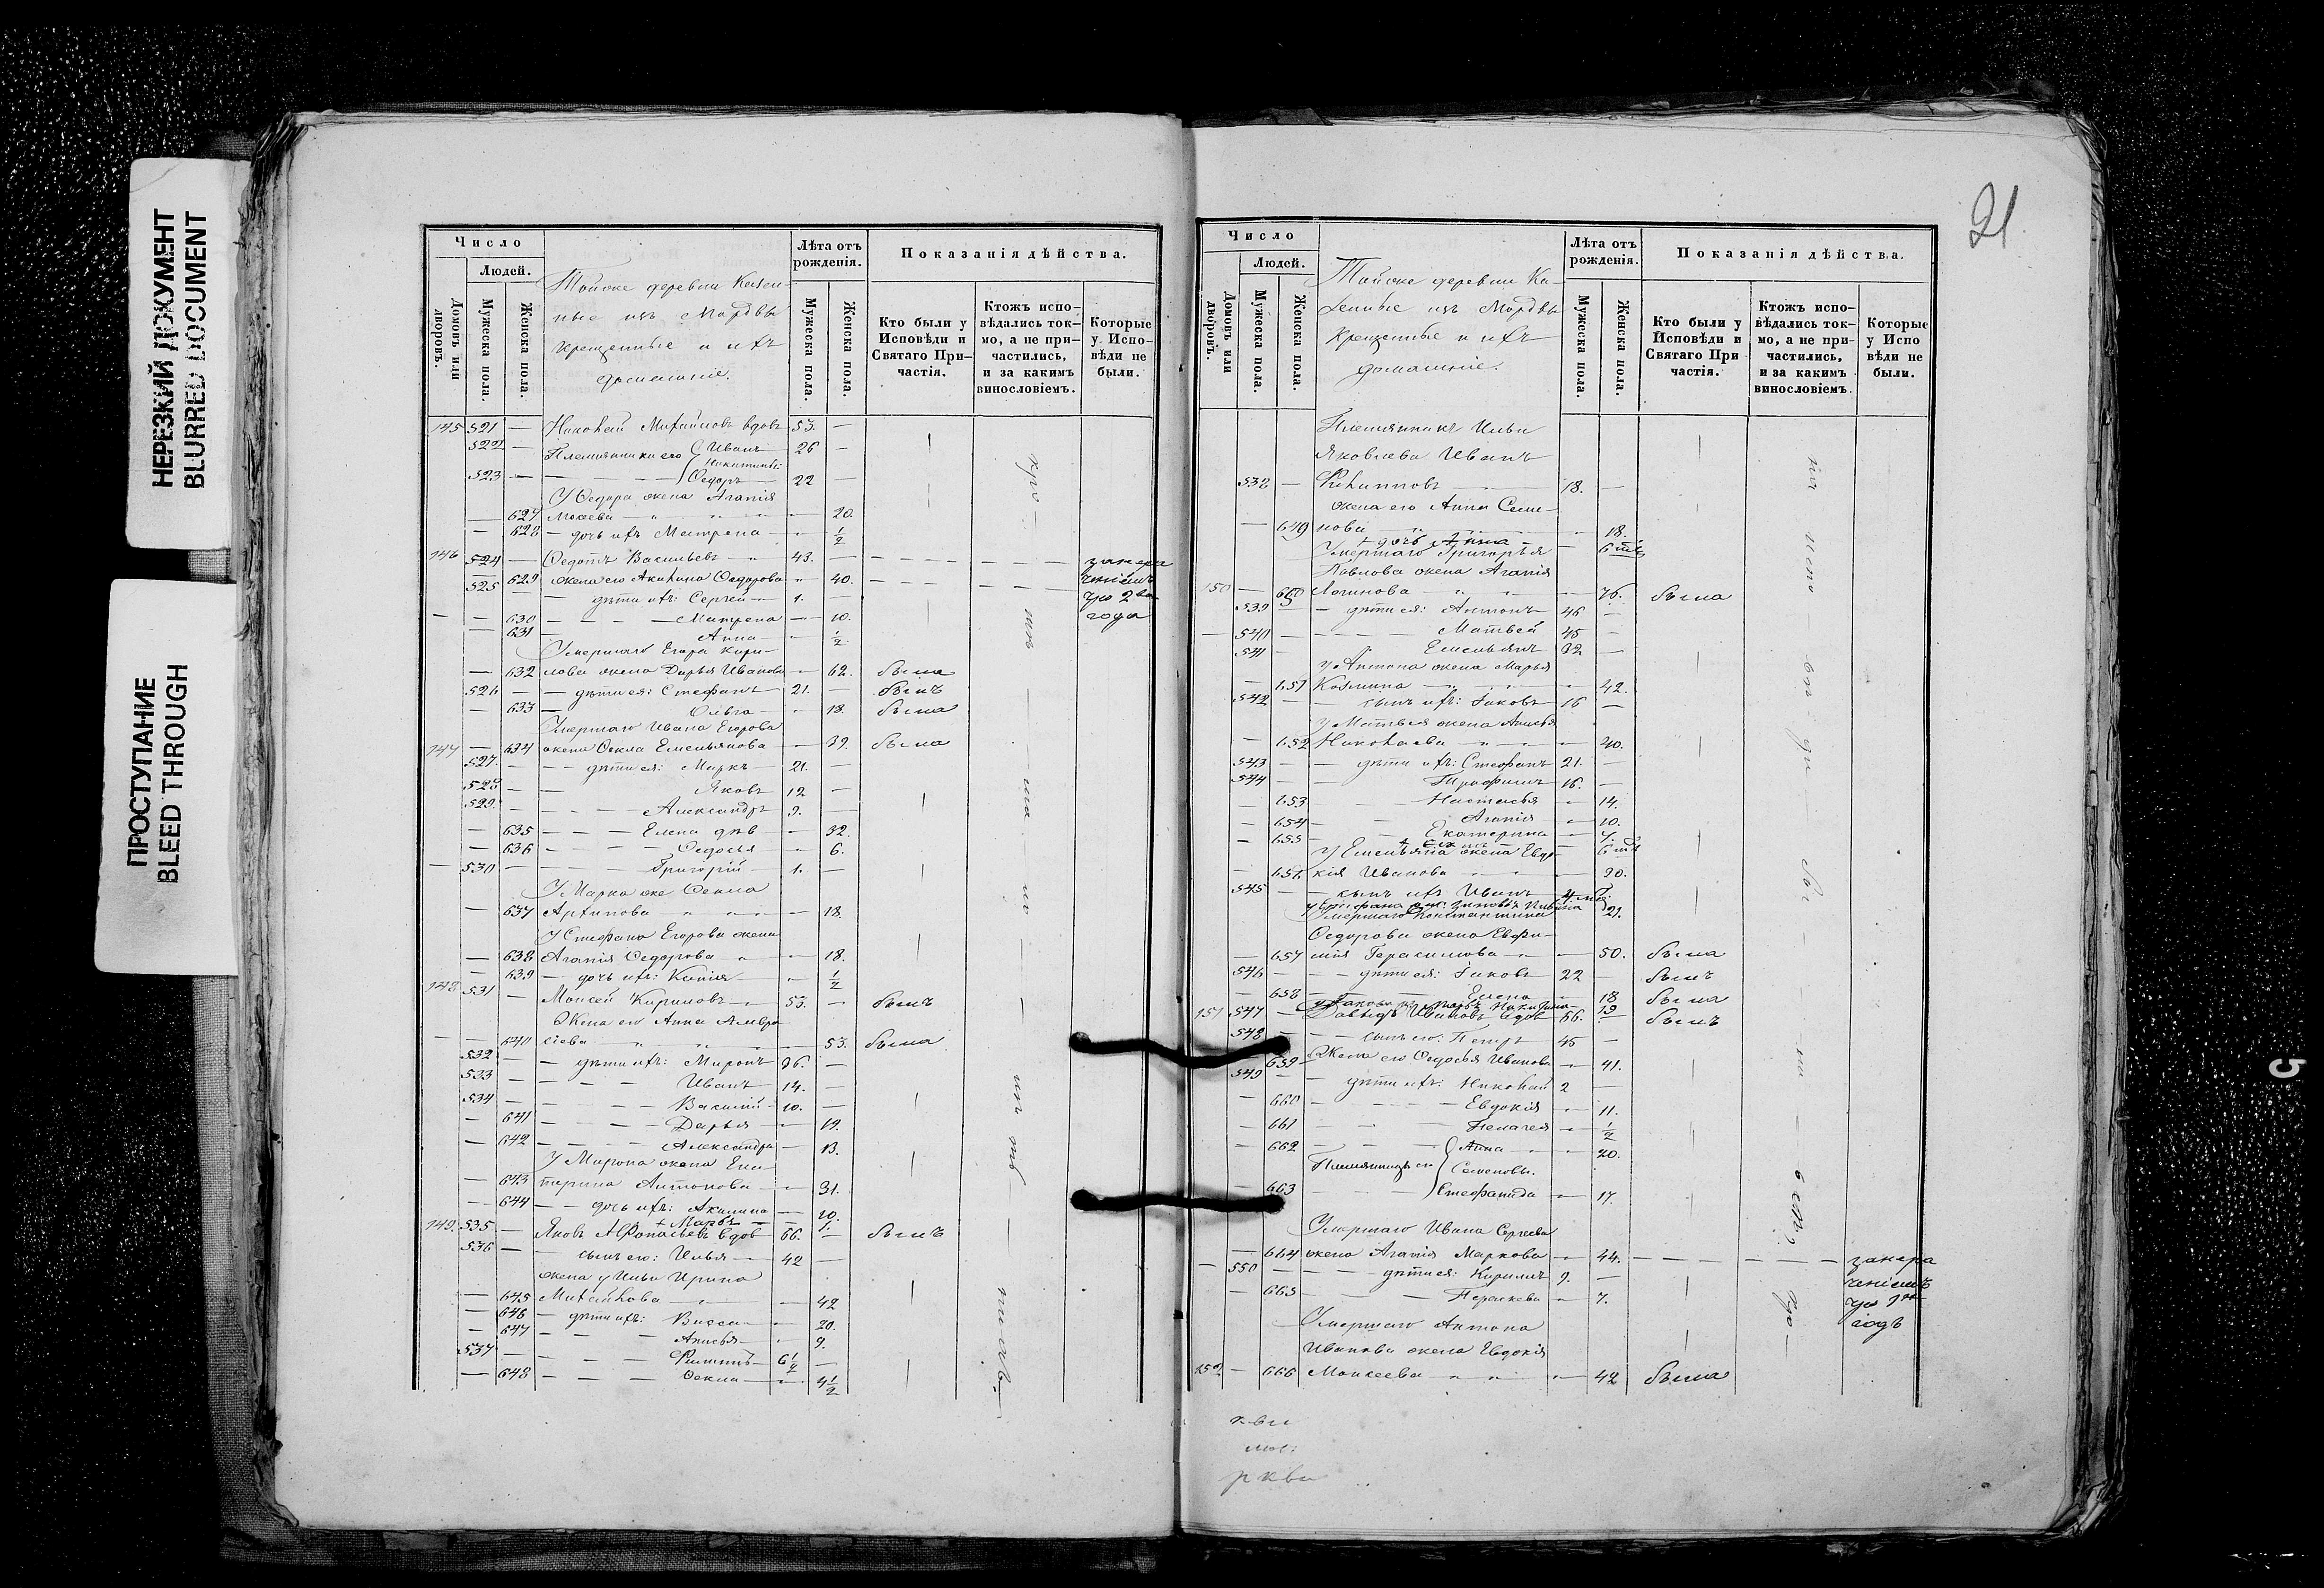 НЕРЕЗКИЙ ДОКУМЕНТ
BLURRED DOCUMENT
ПРОСТУПАНИЕ
BLEED THROUGH
Число
Людей.
Домовъ или дворовъ.
Мужеска пола.
Женска пола.
Тойже деревни Казен-
ные изъ Мордвы
крещенные и ихъ
домашніе.
Лѣта отъ рожденія.
Мужеска пола.
Женска пола.
Показанія дѣйства.
Кто были у Исповѣди и Святаго При-частія.
Ктожъ испо-вѣдались ток-мо, а не при-частились, и за какимъ винословіемъ.
Которые у Испо-вѣди не были.
145 521 — Николай Михайловъ вдовъ 53. —
522 — Племянники его Иванъ 26 —
Никитины:
523 — Ѳедоръ 22 —
У Ѳедора жена Агапія
— 627 Мокеева — 20.
— 628 — дочь ихъ Матрена — ½
146 524 — Ѳедотъ Васильевъ 43. —
— 629 жена его Акилина Ѳедорова 40.
525 — дѣти ихъ: Сергей 1. —
— 630 — Матрена — 10.
— 631 — Анна — ½
нерa
за 2ва
года
Умершаго Егора Кири-
— 632 лова жена Дарья Иванова — 62. была
526 — дѣти ея: Стефанъ 21. — былъ
— 633 — Ольга — 18 была
Умершаго Ивана Егорова
147 — 634 жена Ѳекла Емельянова — 39. была
527. — дѣти ея: Маркъ 21. —
528 — Яковъ 12 —
529. — Александръ 9.
— 635 — Елена дѣв — 32.
— 636 — Ѳедосья — 6.
530 — Григорій 1. —
У Марка же Ѳекла
— 637 Архипова — 18.
У Стефана Егорова жена
— 638 Агапія Ѳедорова — 18.
— 639 — дочь ихъ: Ксенія — ½
148 531 — Моисей Кириловъ 53. — былъ
Жена его Анна Амвро-
— 640 сіева — 53. была
532 — дѣти ихъ: Миронъ 26. —
533 — Иванъ 14. —
534 — Василій 10. —
— 641 — Дарья — 19.
— 642 — Александра — 13.
У Мирона жена Ека-
— 643 терина Антонова — 31.
— 644 — дочь ихъ: Акилина — 10.
+ Марья — 1.
149. 535 — Яковъ Афонасьевъ вдов 66. — былъ
536 — сынъ его: Илья 42 —
жена у Ильи Ирина
— 645 Михайлова — 42
— 646 — дѣти ихъ: Васса — 20.
— 647 — Анисья — 9.
537 — Филиппъ 6½ —
— 648 — Ѳекла — 4½
21
Число
Людей.
Домовъ или дворовъ.
Мужеска пола.
Женска пола.
Тойже деревни Ка-
зенные изъ Мордвы
крещенные и ихъ
домашніе.
Лѣта отъ рожденія.
Мужеска пола.
Женска пола.
Показанія дѣйства.
Кто были у Исповѣди и Святаго При частія.
Ктожъ испо-вѣдались ток-мо, а не при-частились, и за какимъ винословіемъ.
Которые у Испо вѣди не были.
Племянникъ Ильи
Яковлева Иванъ
538 — Филипповъ 18. —
жена его Анна Семе-
— 649 нова — 18.
+ дочь Анна —
Умершаго Григорья
Павлова жена Агапія
150 — 650 Логинова — 76. была
539 — дѣти ея: Антонъ 46 —
540 — Матвей 45 —
541 — Емельянъ 32 —
У Антона жена Марья
— 651 Козмина — 42.
542 — сынъ ихъ: Іаковъ 16 —
У Матвея жена Анисья
— 652 Николаева — 40.
543 — дѣти ихъ: Стефанъ 21. —
544 — Трофимъ 16. —
— 653 — Настасья — 14.
— 654 — Агапія — 10.
— 655 — Екатерина — 7.
У Емельяна жена Евдо-
— 656 кія Иванова — 30.
545 — сынъ ихъ Иванъ
21.
Умершаго Константина
Ѳедорова жена Евфи-
— 657 мія Герасимова — 50. была
546 — дѣти ея: Іаковъ 22 — былъ
— 658 — Елена — 18 была
19
151 547 — Давыдъ Ивановъ вдов 66. — былъ
548 — сынъ его: Петръ 45 —
659 Жена его Ѳедосья Иванова — 41.
549 — дѣти ихъ: Николай 2 —
— 660 — Евдокія — 11.
— 661 — Пелагея — ½
— 662 — Анна — 20.
Племянницы его Семеновы.
— 663 — Стефанида — 17.
Умершаго Ивана Сергеева
— 664 жена Агапія Маркова — 44.
550 — дѣти ея: Кирилъ 9. —
— 665 — Параскева — 7.
годъ
Умершаго Антона
Иванова жена Евдокія
152 — 666 Моисеева — 42 была
5